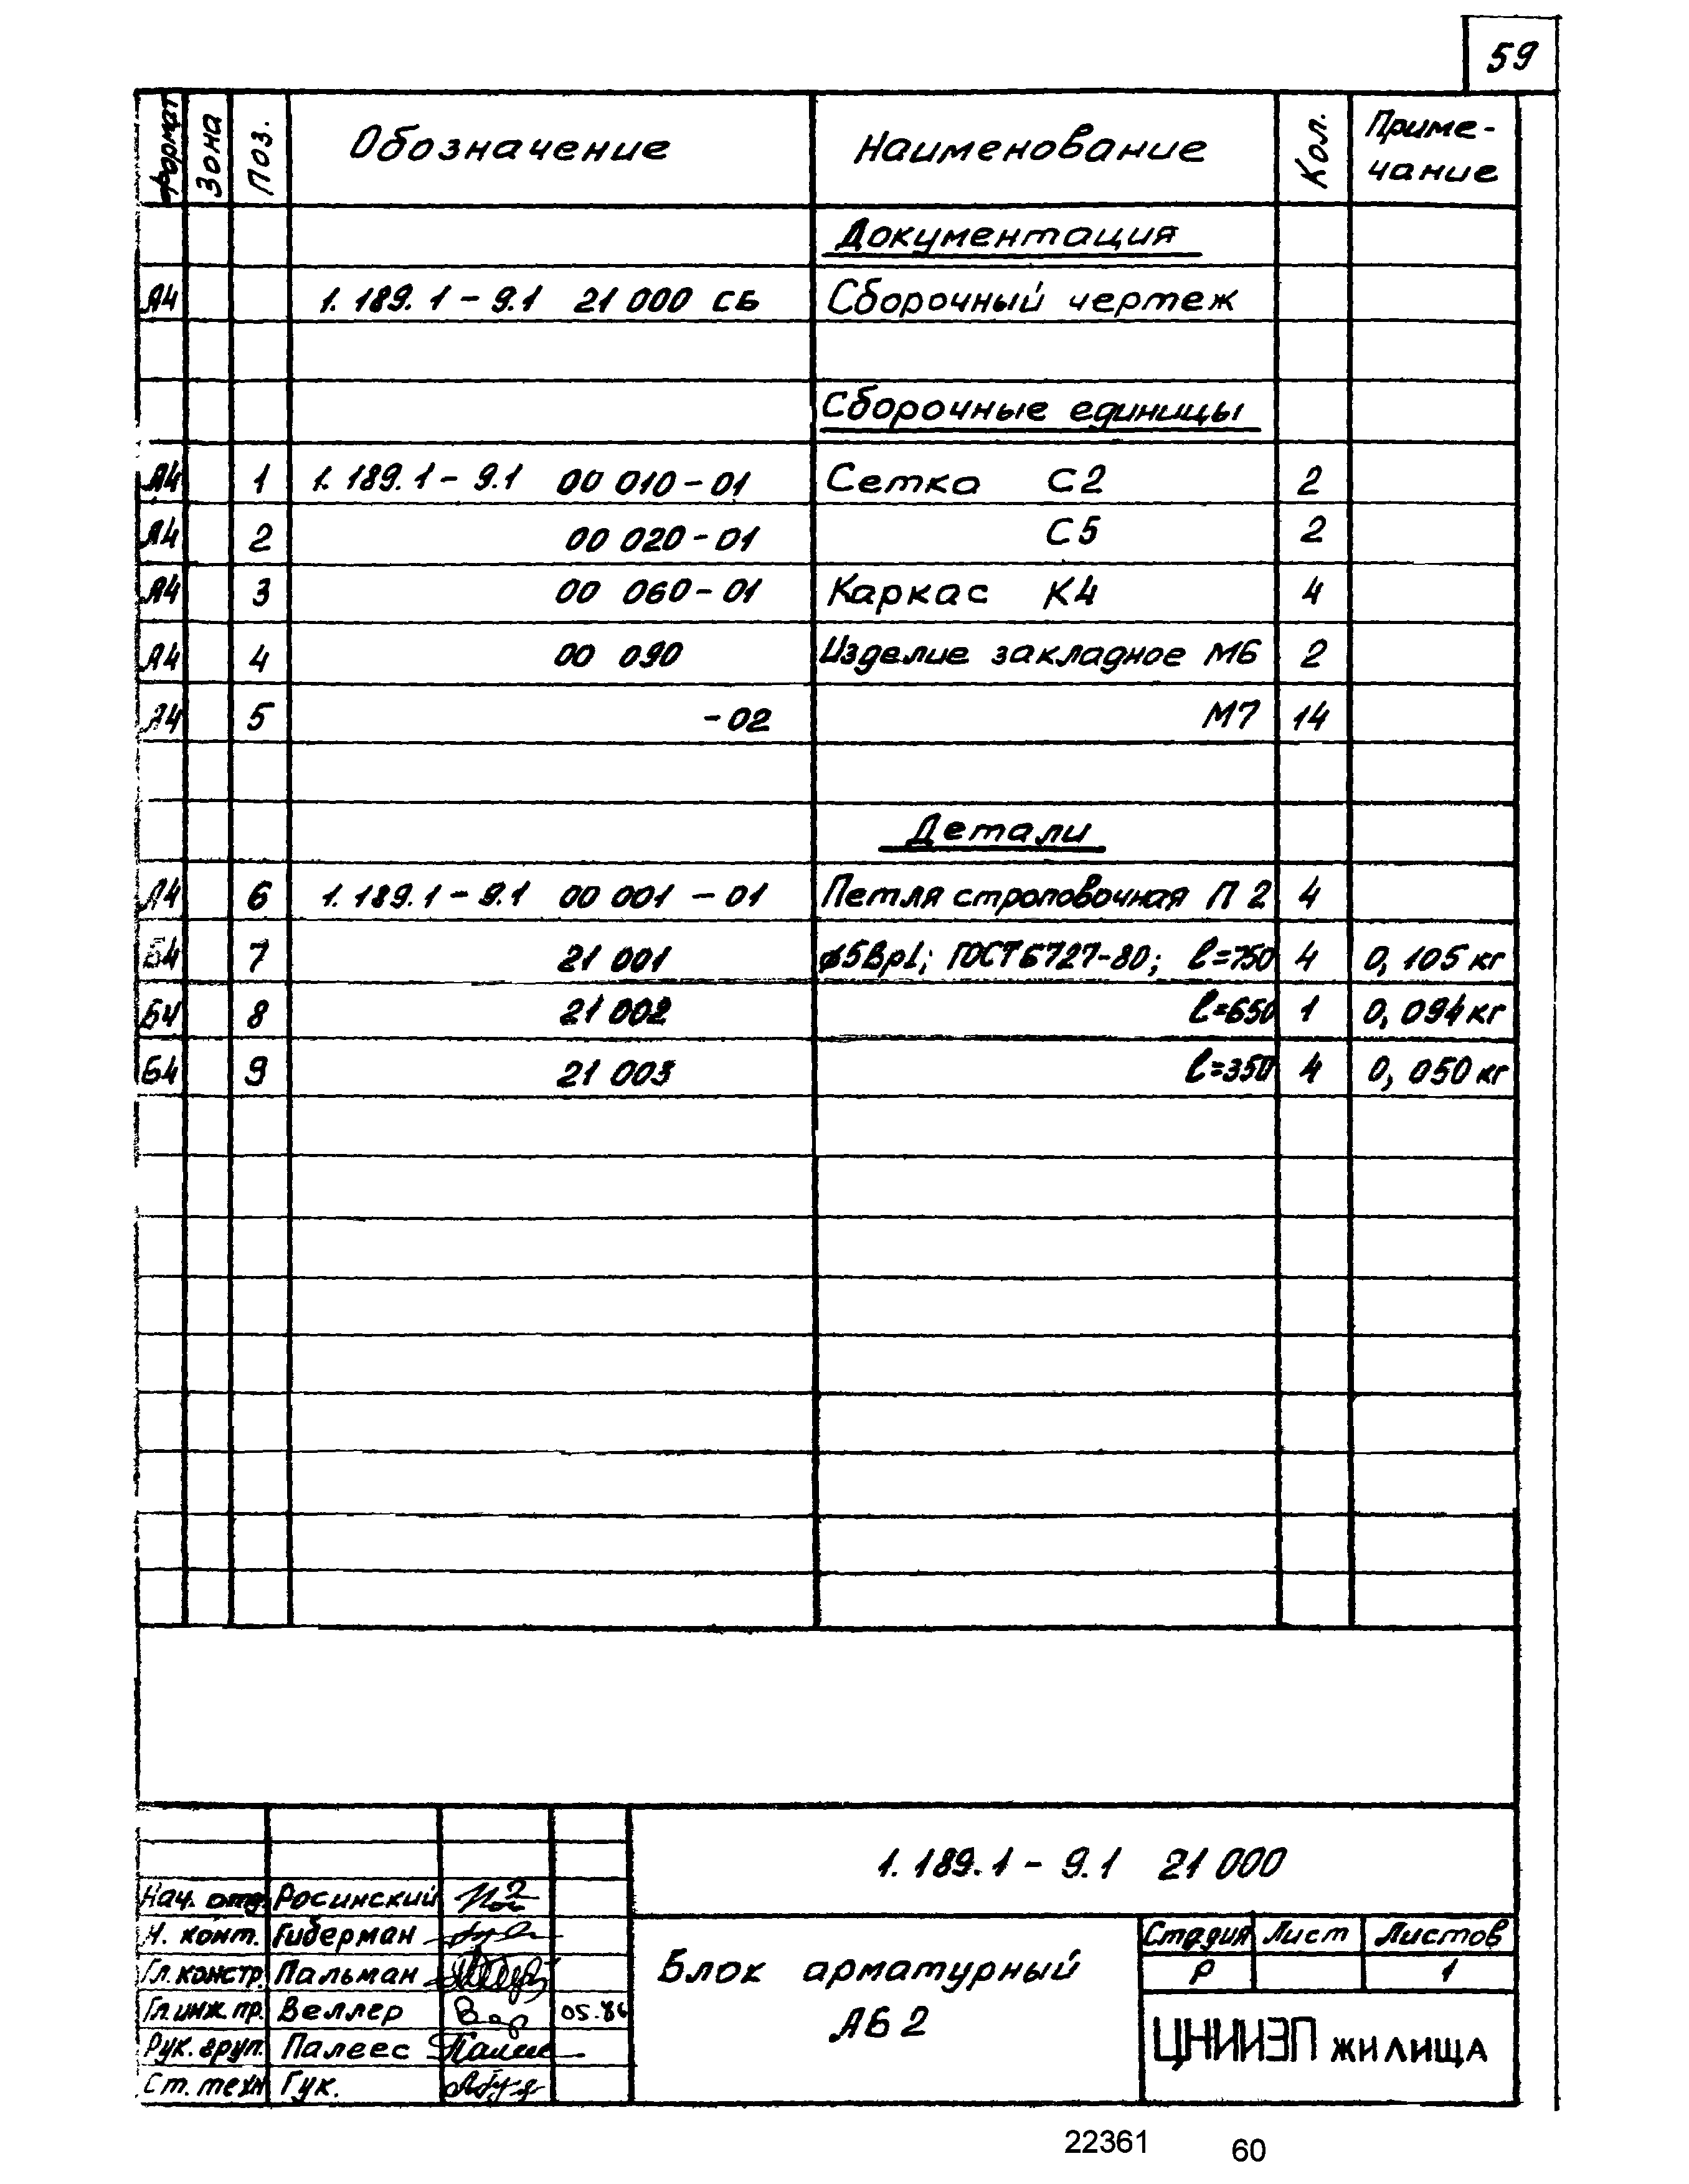 59
Формат Зона Поз. Обозначение Наименование Кол. Приме-
чание
Документация
А4 1.189.1-9.1 21 000 СБ Сборочный чертеж
Сборочные единицы
А4 1 1.189.1-9.1 00 010-01 Сетка С2 2
А4 2 00 020-01 С5 2
А4 3 00 060-01 Каркас К4 4
А4 4 00 090 Изделие закладное М6 2
А4 5 -02 М7 14
Детали
А4 6 1.189.1-9.1 00 001-01 Петля строповочная П2 4
Б4 7 21 001 ø5ВрI; ГОСТ 6727-80; l=750 4 0,105 кг
Б4 8 21 002 l=650 1 0,094 кг
Б4 9 21 003 l=350 4 0,050 кг
1.189.1-9.1 21 000
Нач. отд. Росинский
Н. конт. Гиберман
Гл. констр. Пальман
Гл. инж. пр. Веллер 05.86
Рук. груп. Палеес
Ст. техн Гук.
Блок арматурный
АБ 2
Стадия Лист Листов
Р 1
ЦНИИЭП жилища
22361 60